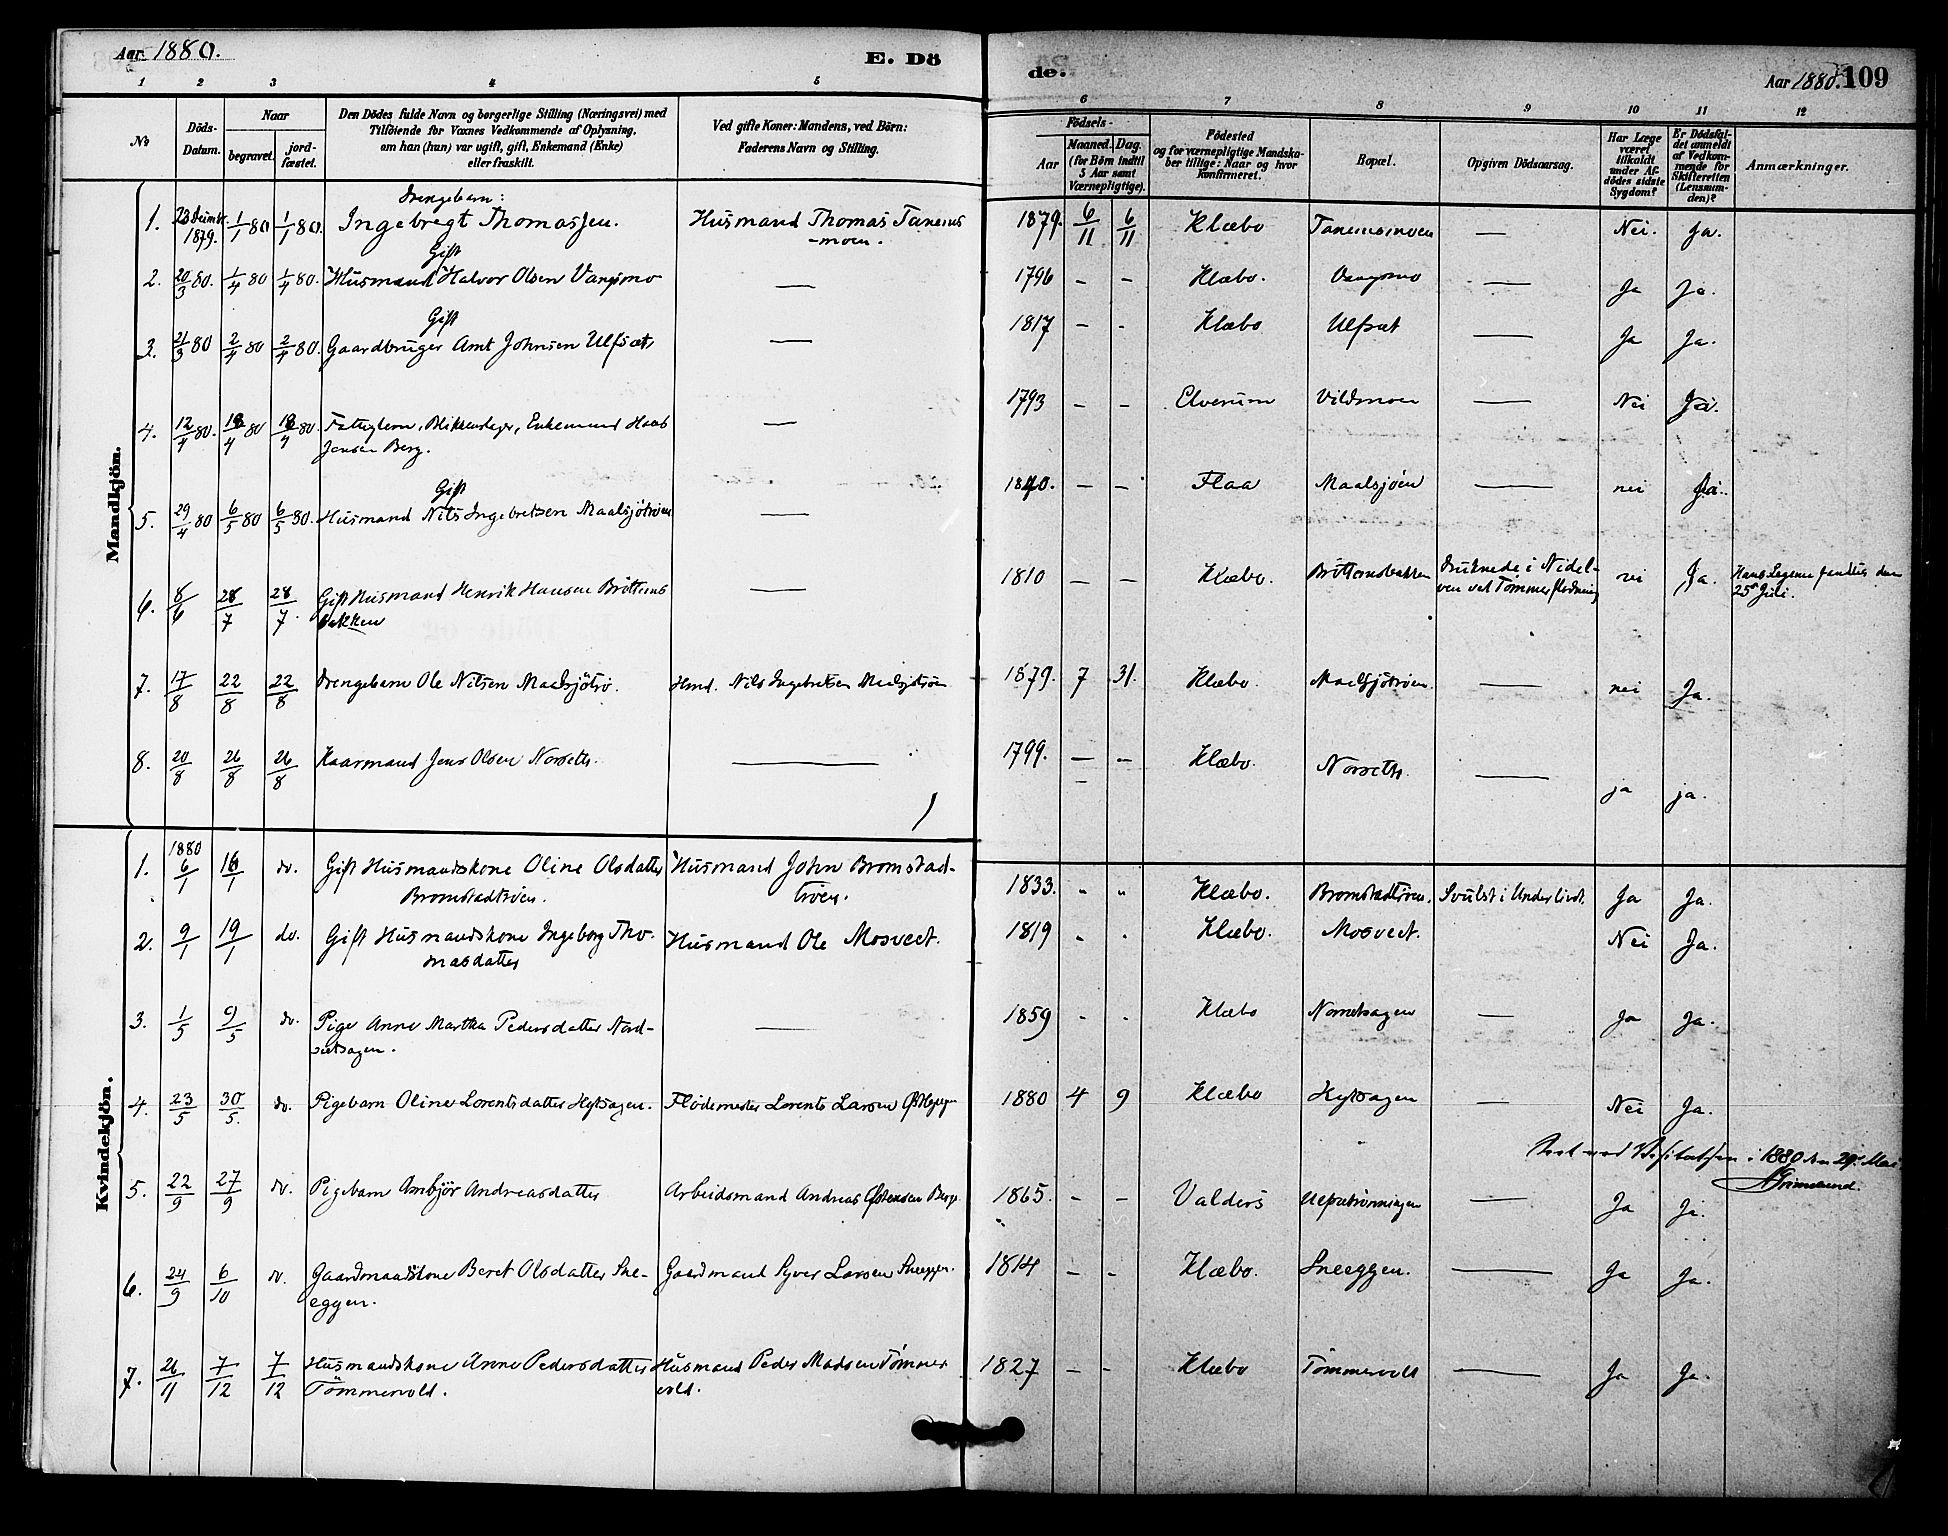 Aar 1880.
E. Dö
1 2 3 4 5
No
Döds-
Datum.
Naar
begravet.
jord-
fæstet.
Den Dödes fulde Navn og borgerlige Stilling (Næringsvei) med
Tilföiende for Voxnes Vedkommende af Oplysning,
om han (hun) var ugift, gift, Enkemand (Enke)
eller fraskilt.
Ved gifte Koner: Mandens, ved Börn:
Faderens Navn og Stilling.
Mandkjön.
Drengebarn:
1. 23 Decmbr. 1879. 1/1 80 1/1 80. Ingebregt Thomassen. Husmand Thomas Tanems
-moen.
Gift
2. 20/3 80. 1/4 80 1/4 80. Husmand Halvor Olsen Vangsmo —
Gift
3. 21/3 80 2/4 80 2/4 80. Gaardbruger Arnt Johnsen Ulfsæt —
4. 12/4 80. 80 80. Fattiglem, Blikkenslager, Enkemand Hans —
Jensen Berg.
Gift
5. 29/4 80 6/5 80 6/5 80. Husmand Nils Ingebretsen Maalsjötröen —
6. 8/6 28/7 28/7 Gift Husmand Henrik Hansen Bröttems —
bakken
7. 17/8 22/8 22/8 Drengebarn Ole Nilsen Maalsjötrö. Husmd. Nils Ingebretsen Maalsjötröen
8. 20/8 26/8 26/8 Kaarmand Jens Olsen Norseth. —
Kvindekjön.
1880
1. 6/1 16/1 do. Gift Husmandskone Oline Olsdatter Husmand John Bromstad-
Bromstadtröen. tröen.
2. 9/1 19/1 do. Gift Husmandskone Ingeborg Tho- Husmand Ole Mosveet.
masdatter
3. 1/5 9/5 do. Pige Anne Martha Pedersdatter Nord- —
sætsagen.
4. 23/5 30/5. do. Pigebarn Oline Lorentsdatter Hytsagen. Flödemester Lorents Larsen
5. 22/9 27/9 do. Pigebarn Ambjör Andreasdatter Arbeidsmand Andreas Östensen Berge
6. 24/9 6/10 do. Gaardmandskone Beret Olsdatter Sne- Gaardmand Syver Larsen Sneeggen.
eggen.
7. 26/11 7/12 7/12 Husmandskone Anne Pedersdatter Husmand Peder Madsen Tömmer
Tömmervold. vold.
de.
Aar 1880. 109
6 7 8 9 10 11 12
Födsels-
Aar
Maaned. Dag.
(for Börn indtil
5 Aar samt
Værnepligtige).
Födested
og for værnepligtige Mandska-
ber tillige: Naar og hvor
konfirmeret.
Bopæl.
Opgiven Dödsaarsag.
Har Læge
været
tilkaldt
under Af-
dödes sidste
Sygdom?
Er Dödsfal-
det anmeldt
af Vedkom-
mende for
Skifteretten
(Lensman-
den)?
Anmærkninger.
1879. 6/11 6/11 Klæbo Tanemsmoen — Nei. Ja.
1796 - - Klæbo. Vangsmo — Ja Ja.
1817 - - Klæbo Ulfsæt — Ja Ja.
1793 - - Elverum Vildmoen — Nei Ja.
1840. - - Flaa Maalsjöen — nei Ja.
1810 - - Klæbo. Bröttemsbakken druknede i Nidel- nei Ja. Hans Legeme fandtes den
ven ved Tömmerflödning 25de Juli.
1879. 7 31. Klæbo. Maalsjötröen. — nei Ja.
1799. - - Klæbo. Norseth. — ja ja.
1833. - " Klæbo. Bromstadtröen. Svulst i Underlivet. Ja Ja.
1819 - - Klæbo. Mosveet. Nei Ja.
1859 - - Klæbo Nordsætsagen — Ja Ja.
1880 4 9 Klæbo Hytsagen — Nei Ja.
ved Visitatsen i 1880 den 29de Mai
Grimelund.
1865. - - Valders Ulfsætrönningen — Ja Ja.
1814 - - Klæbo. Sneeggen. — Ja Ja.
1827 - - Klæbo Tömmervold — Ja Ja.